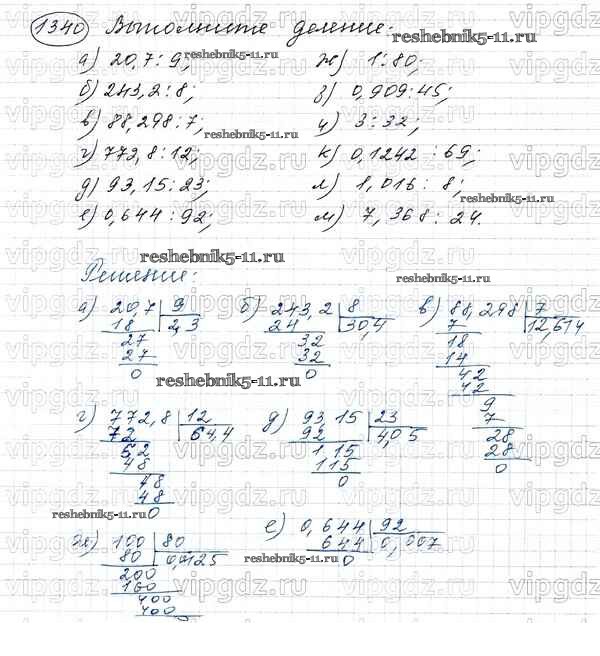 1340 Выполните деление:
а) 20,7 : 9; ж) 1 : 80;
б) 243,2 : 8; з) 0,909 : 45;
в) 88,298 : 7; и) 3 : 32;
г) 773,8 : 12; к) 0,1242 : 69;
д) 93,15 : 23; л) 1,016 : 8;
е) 0,644 : 92; м) 7,368 : 24.
Решение:
а) 20,7 9 б) 243,2 8 в) 88,298 7
18 2,3 24 30,4 7 12,614
27 32 18
27 32 14
0 0 42
42
г) 772,8 12 д) 93,15 23 9
72 64,4 92 4,05 7
52 1,15 28
48 115 28
48 0 0
48
0
ж) 100 80 е) 0,644 92
80 0,0125 644 0,007
200 0
160
400
400
reshebnik5-11.ru
vipgdz.ru